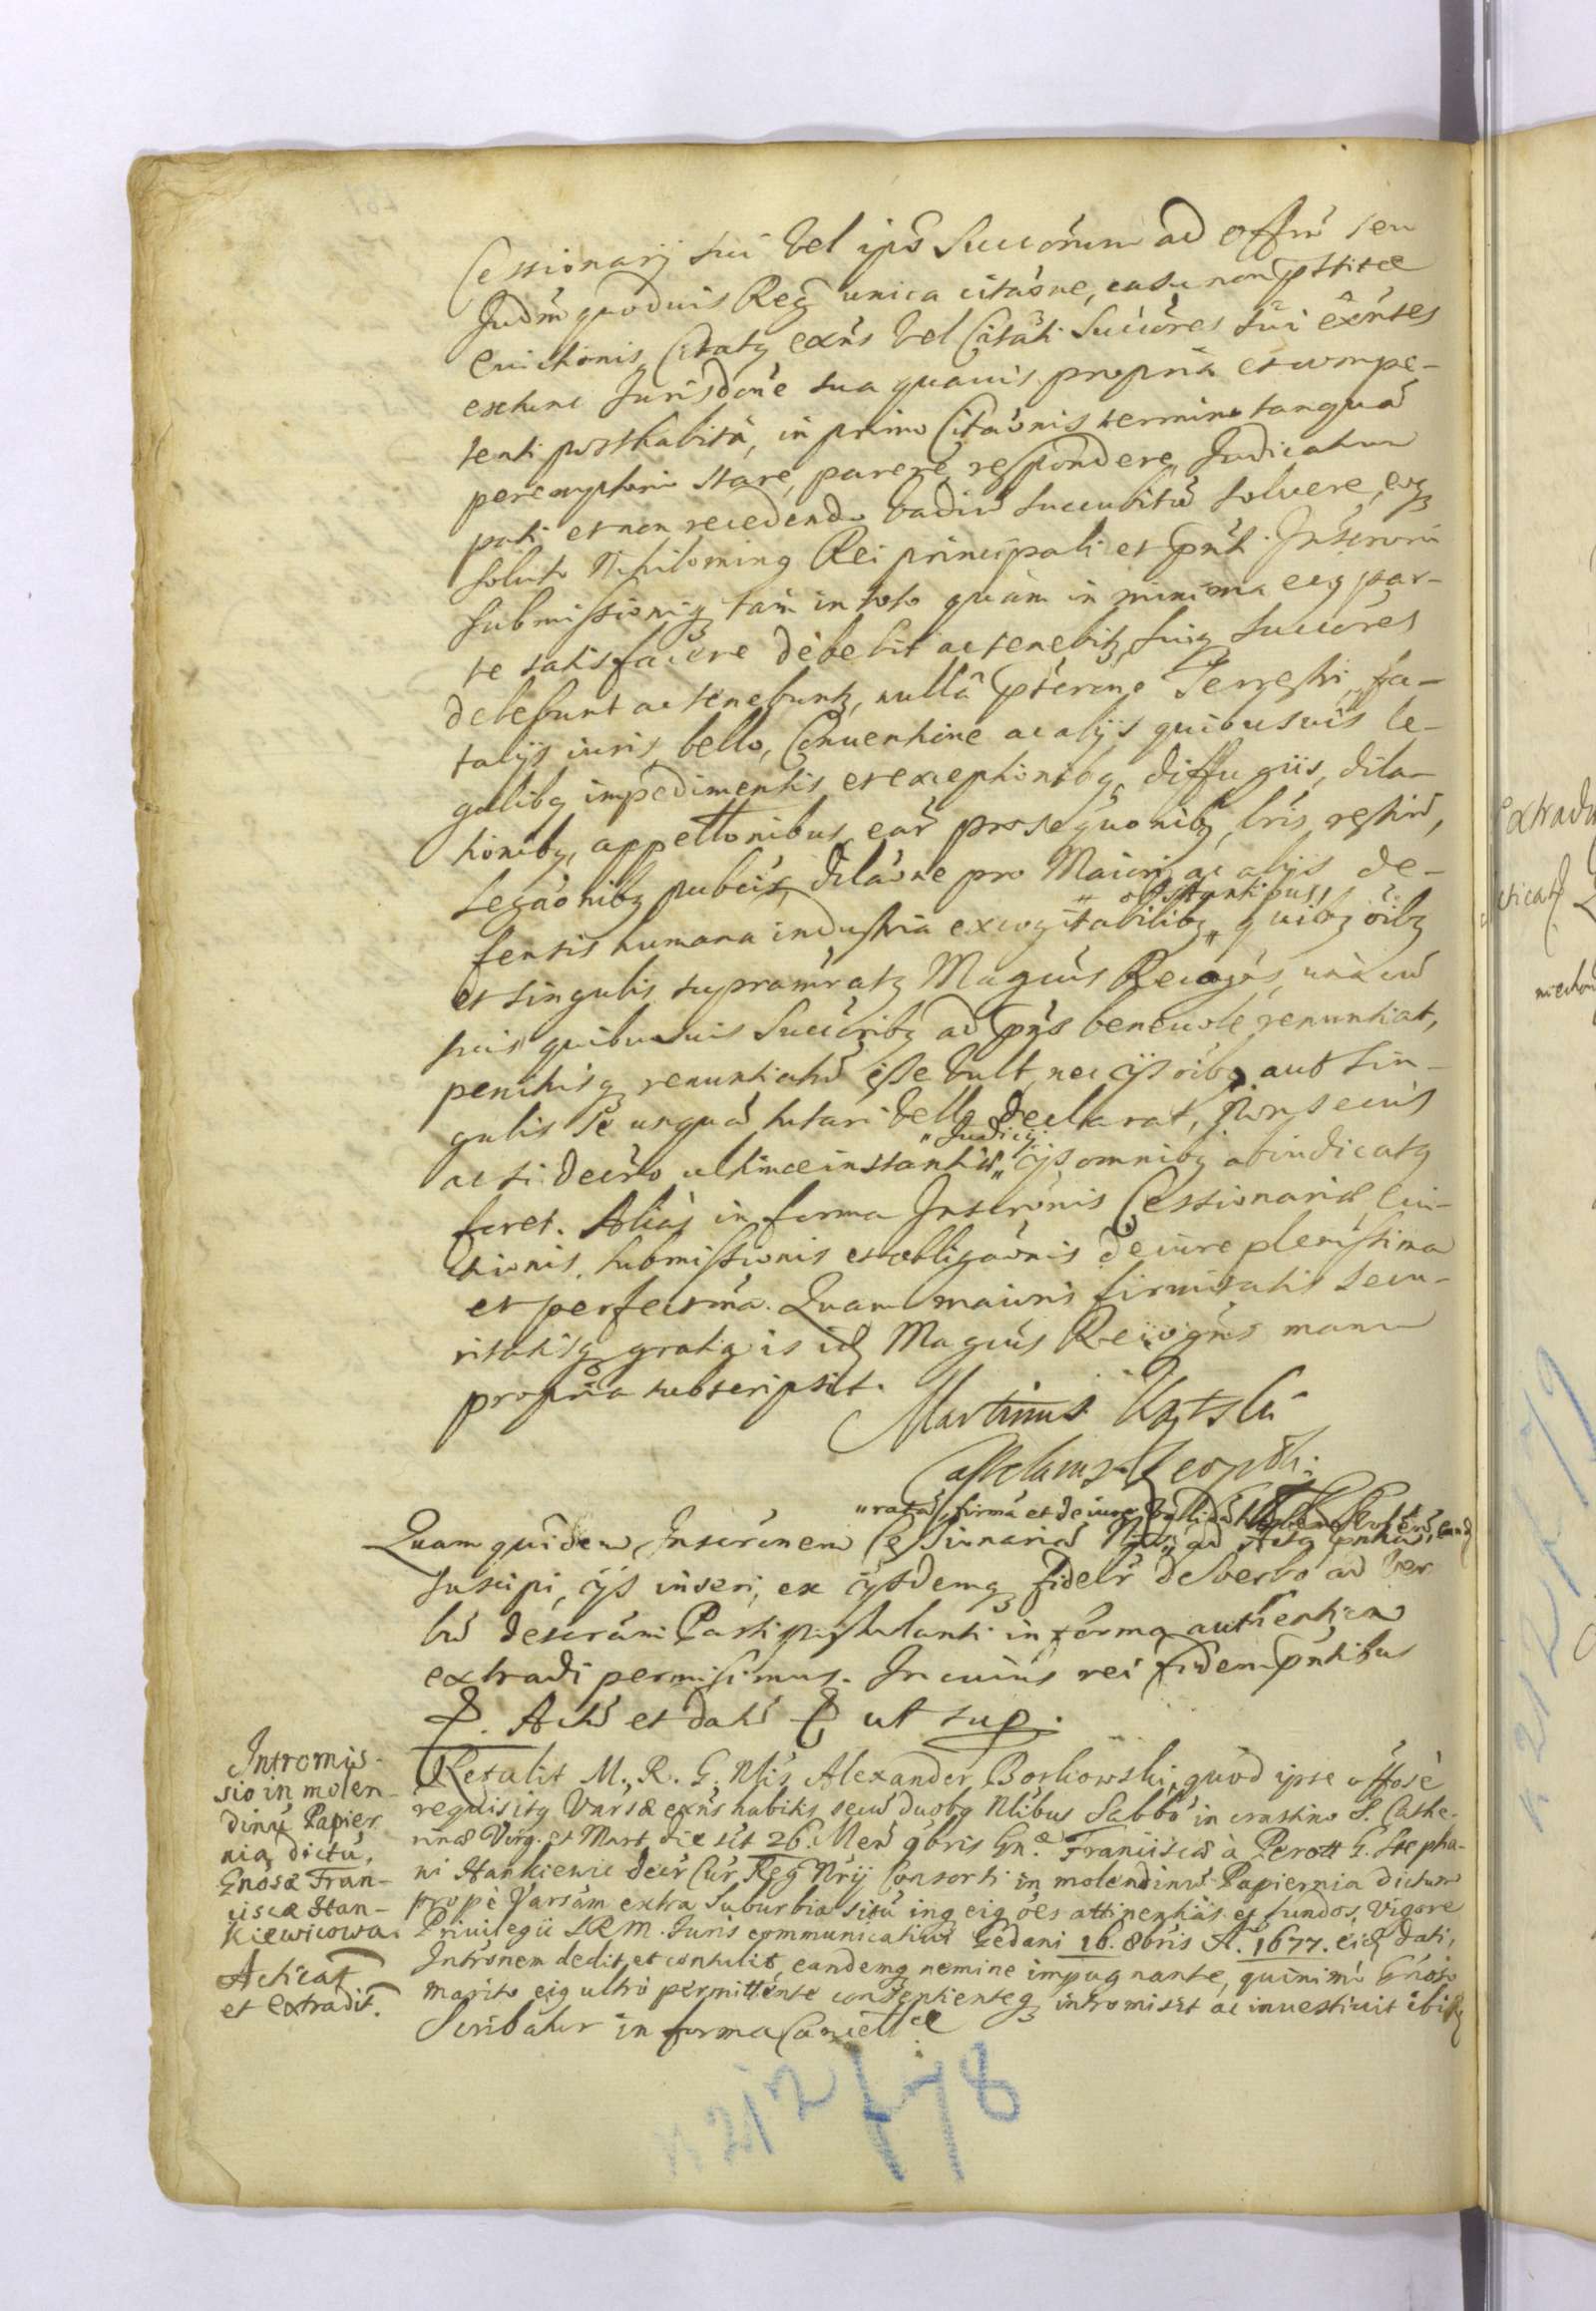 Cessionarij sui vel ips Succorum ad offm seu
Judm quoduis Reg unica citaone, casu non pstitae
euictionis, Citatq exns vel Citati Succores sui exntes
exhinc Jurisdone sua quauis propria et compe-
tenti posthabita, in primo Citaonis termino tanqua
peremptorio stare, parere, respondere, Judicatum
pati et non recedendo vadiu succubitu soluere, eoq
soluto Nihilominq Rei principali et pnti Inscroni
submissioniq tam in toto quam in minima eiq par-
te satisfacere debebit ac tenebitq, suiq succores
debebunt ac tenebuntq, nullâ psciône Terrestri, fa-
talijs iuris, bello, Conuentione ac alijs quibusuis le-
galibq impedimentis et exceptionibq, diffugiis, dila-
tionibq, appellonibus, ear prosequonibq, lris restru,
Legaonibq publcis, dilaone pro Maiori, ac alijs de-
" obstantibus,
fensis humana industria excogitabilibq " quibq oibq
et singulis supramratq Magcus Recogns, una cu
suis quibusuis Succoribq ad pns beneuole renuntiat,
penitusq renuntiatu esse vult, nec ijs oibq aut sin-
gulis se unqua tutari velle declarat, Non secus
"Judicij
ac si decro ultimae instantiae " ijs omnibq abiudicatq
foret. Alias in forma Inscronis Cessionariae, Eui-
ctionis, submissionis et obligaonis de iure plenissima
et perfectma. Quam maioris firmitatis secu-
ritatisq gratia is idq Magcus Recogns manu
propria subscripsit.
Martinus
Castelanus Leopoli:
"rata, firma et de iure valida
Quam quidem Inscronem Cessionaria " ad Acta pntia, eand
suscipi, ijs inseri, ex ijsdemq fideli de verbo ad ver
bu descrami Parti postulanti in forma authentica
extradi permisimus. In cuius rei fidem pntibus
p. Actu et datu p ut sup.
Intromis-
sio in molen-
dinu Papier
nia dictu,
Gnosae Fran-
ciscae Stan-
kiewicowa.
Acticat
et extradit.
Retulit M. R. G. Nlis Alexander Borkowski, quod ipse offose
requisitq Varsae exns habitis secu duobq Nlibus Sabbo in crastino S. Cathe-
rinae Virg. et Mart. die sct 26. Men 9bris Gn.ae Franciscae à Perott G. Stepha-
ni Stankiewic decr Cur Reg Nrij Consorti in molendinu Papiernia dictum
prope Varsam extra suburbia situ inq eiq oes attinentias et fundos, Vigore
Priuilegii S R M. Juris communicatiui Gedani 16. 8bris A. 1677. eid dati,
Intronem dedit et contulit, eandemq nemine impugnante, quinimo Gnoso
marito eiq ultro permittente consentienteq intromisit ac inuestiuit ibiq
Scribatur in forma Cancellae